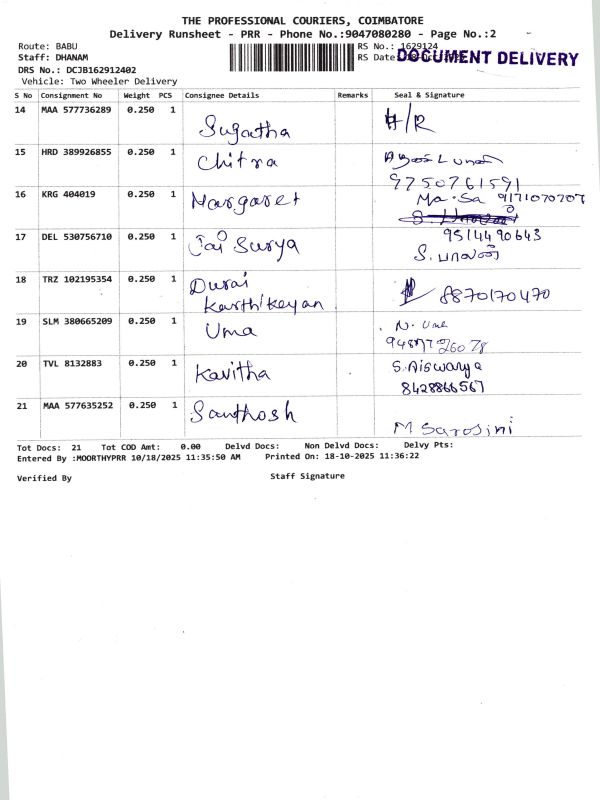 THE PROFESSIONAL COURIERS, COIMBATORE
Delivery Runsheet - PRR - Phone No.:9047080280 - Page No.:2
Route: BABU RS No.: 1629124
Staff: DHANAM RS Date: DOCUMENT DELIVERY
DRS No.: DCJB162912402
Vehicle: Two Wheeler Delivery
S No Consignment No Weight PCS Consignee Details Remarks Seal & Signature
14 MAA 577736289 0.250 1 Sugatha H/R
15 HRD 389926855 0.250 1 Chitra
9750761591
16 KRG 404019 0.250 1 Margaret Ma.Sa 9171070707
17 DEL 530756710 0.250 1 Jai Surya 9514490643
S. பாலன்
18 TRZ 102195354 0.250 1 Durai
Karthikeyan 8870170470
19 SLM 380665209 0.250 1 Uma N. Uma
20 TVL 8132883 0.250 1 Kavitha S. Aiswarya
8428866567
21 MAA 577635252 0.250 1 Santhosh
M Sarojini
Tot Docs: 21 Tot COD Amt: 0.00 Delvd Docs: Non Delvd Docs: Delvy Pts:
Entered By :MOORTHYPRR 10/18/2025 11:35:50 AM Printed On: 18-10-2025 11:36:22
Verified By Staff Signature